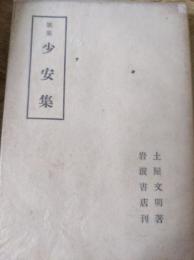 歌集
少安集
土屋文明著
岩波書店刊